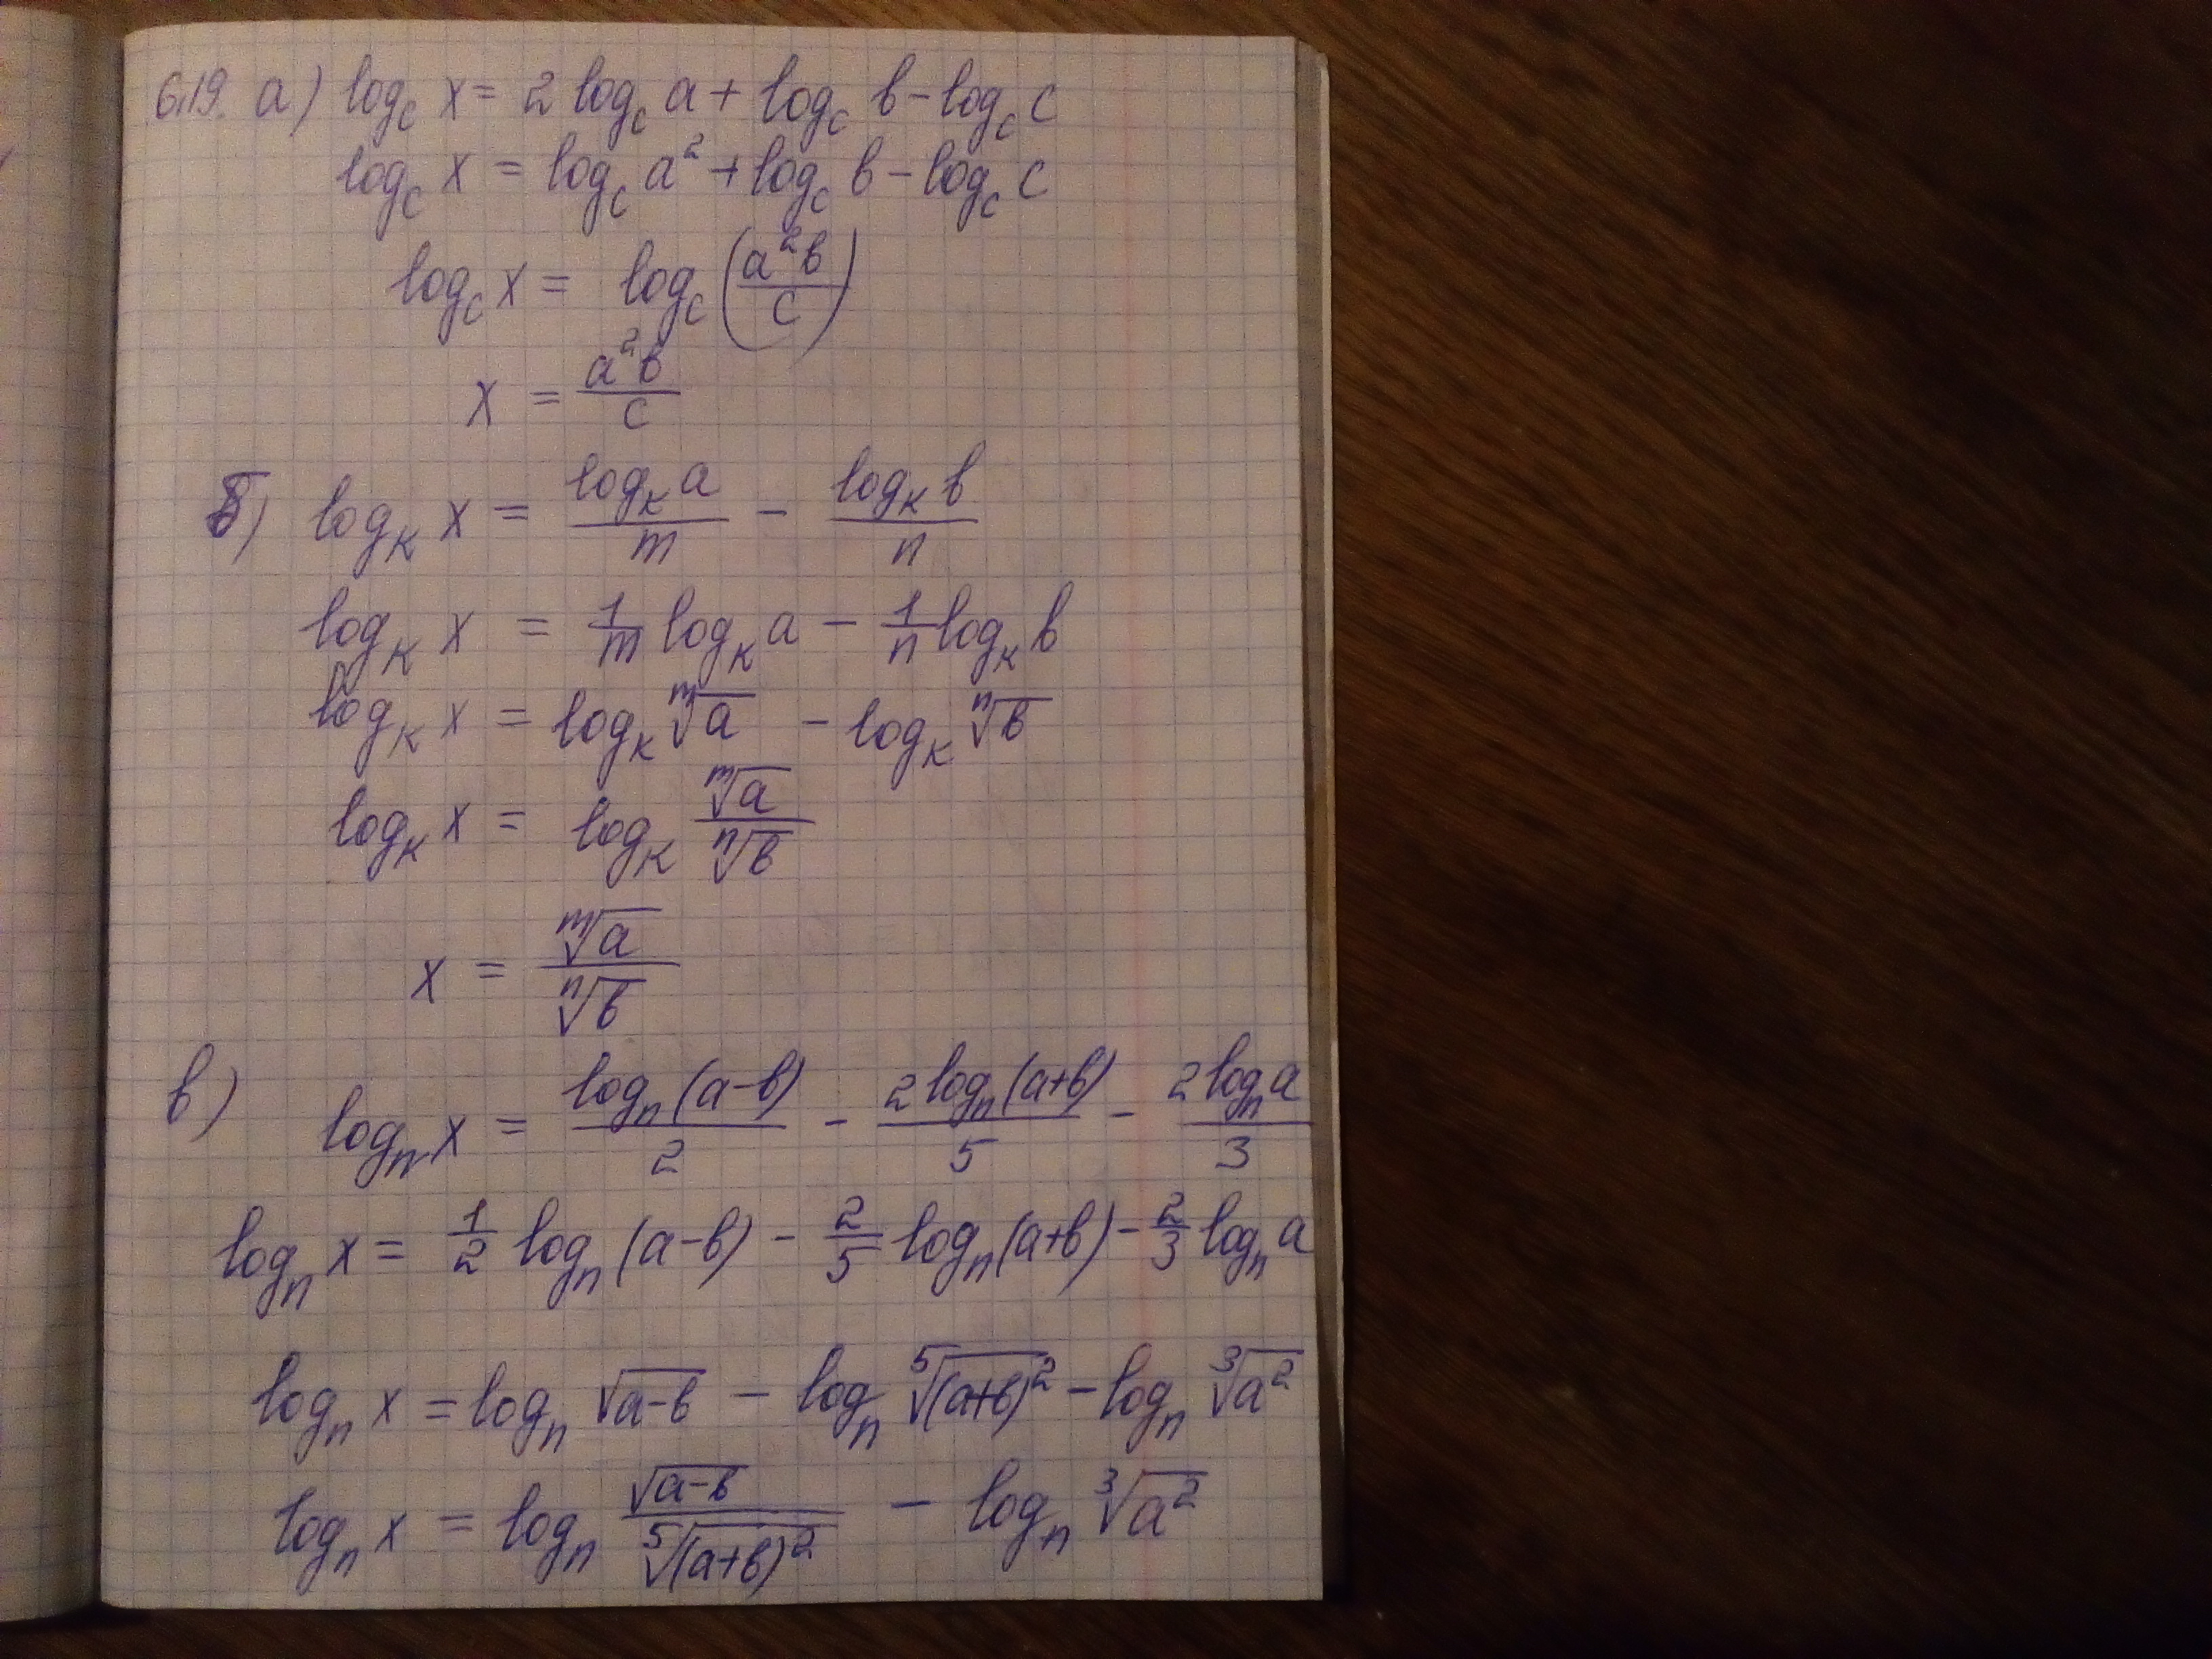 6.19. а) log_c x = 2 log_c a + log_c b - log_c c
log_c x = log_c a² + log_c b - log_c c
log_c x = log_c (a²b/c)
x = a²b/c
б) log_k x = log_k a / m - log_k b / n
log_k x = 1/m log_k a - 1/n log_k b
log_k x = log_k ᵐ√a - log_k ⁿ√b
log_k x = log_k ᵐ√a / ⁿ√b
x = ᵐ√a / ⁿ√b
в) log_n x = log_n (a-b) / 2 - 2 log_n (a+b) / 5 - 2 log_n a / 3
log_n x = 1/2 log_n (a-b) - 2/5 log_n (a+b) - 2/3 log_n a
log_n x = log_n √(a-b) - log_n ⁵√((a+b)²) - log_n ³√(a²)
log_n x = log_n √(a-b) / ⁵√((a+b)²) - log_n ³√(a²)